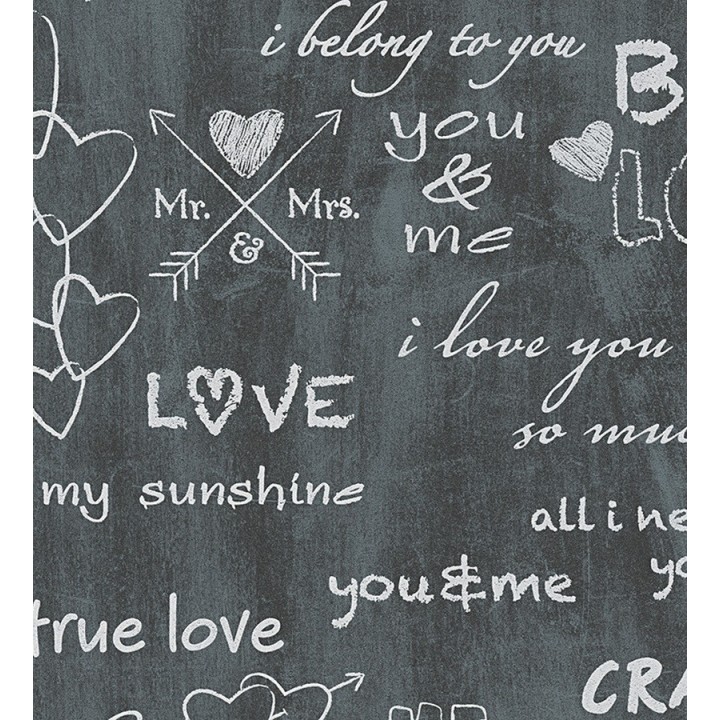 i belong to you
you
&
me
Mr. & Mrs.
i love you
so
LOVE
my sunshine
all i
you&me
true love